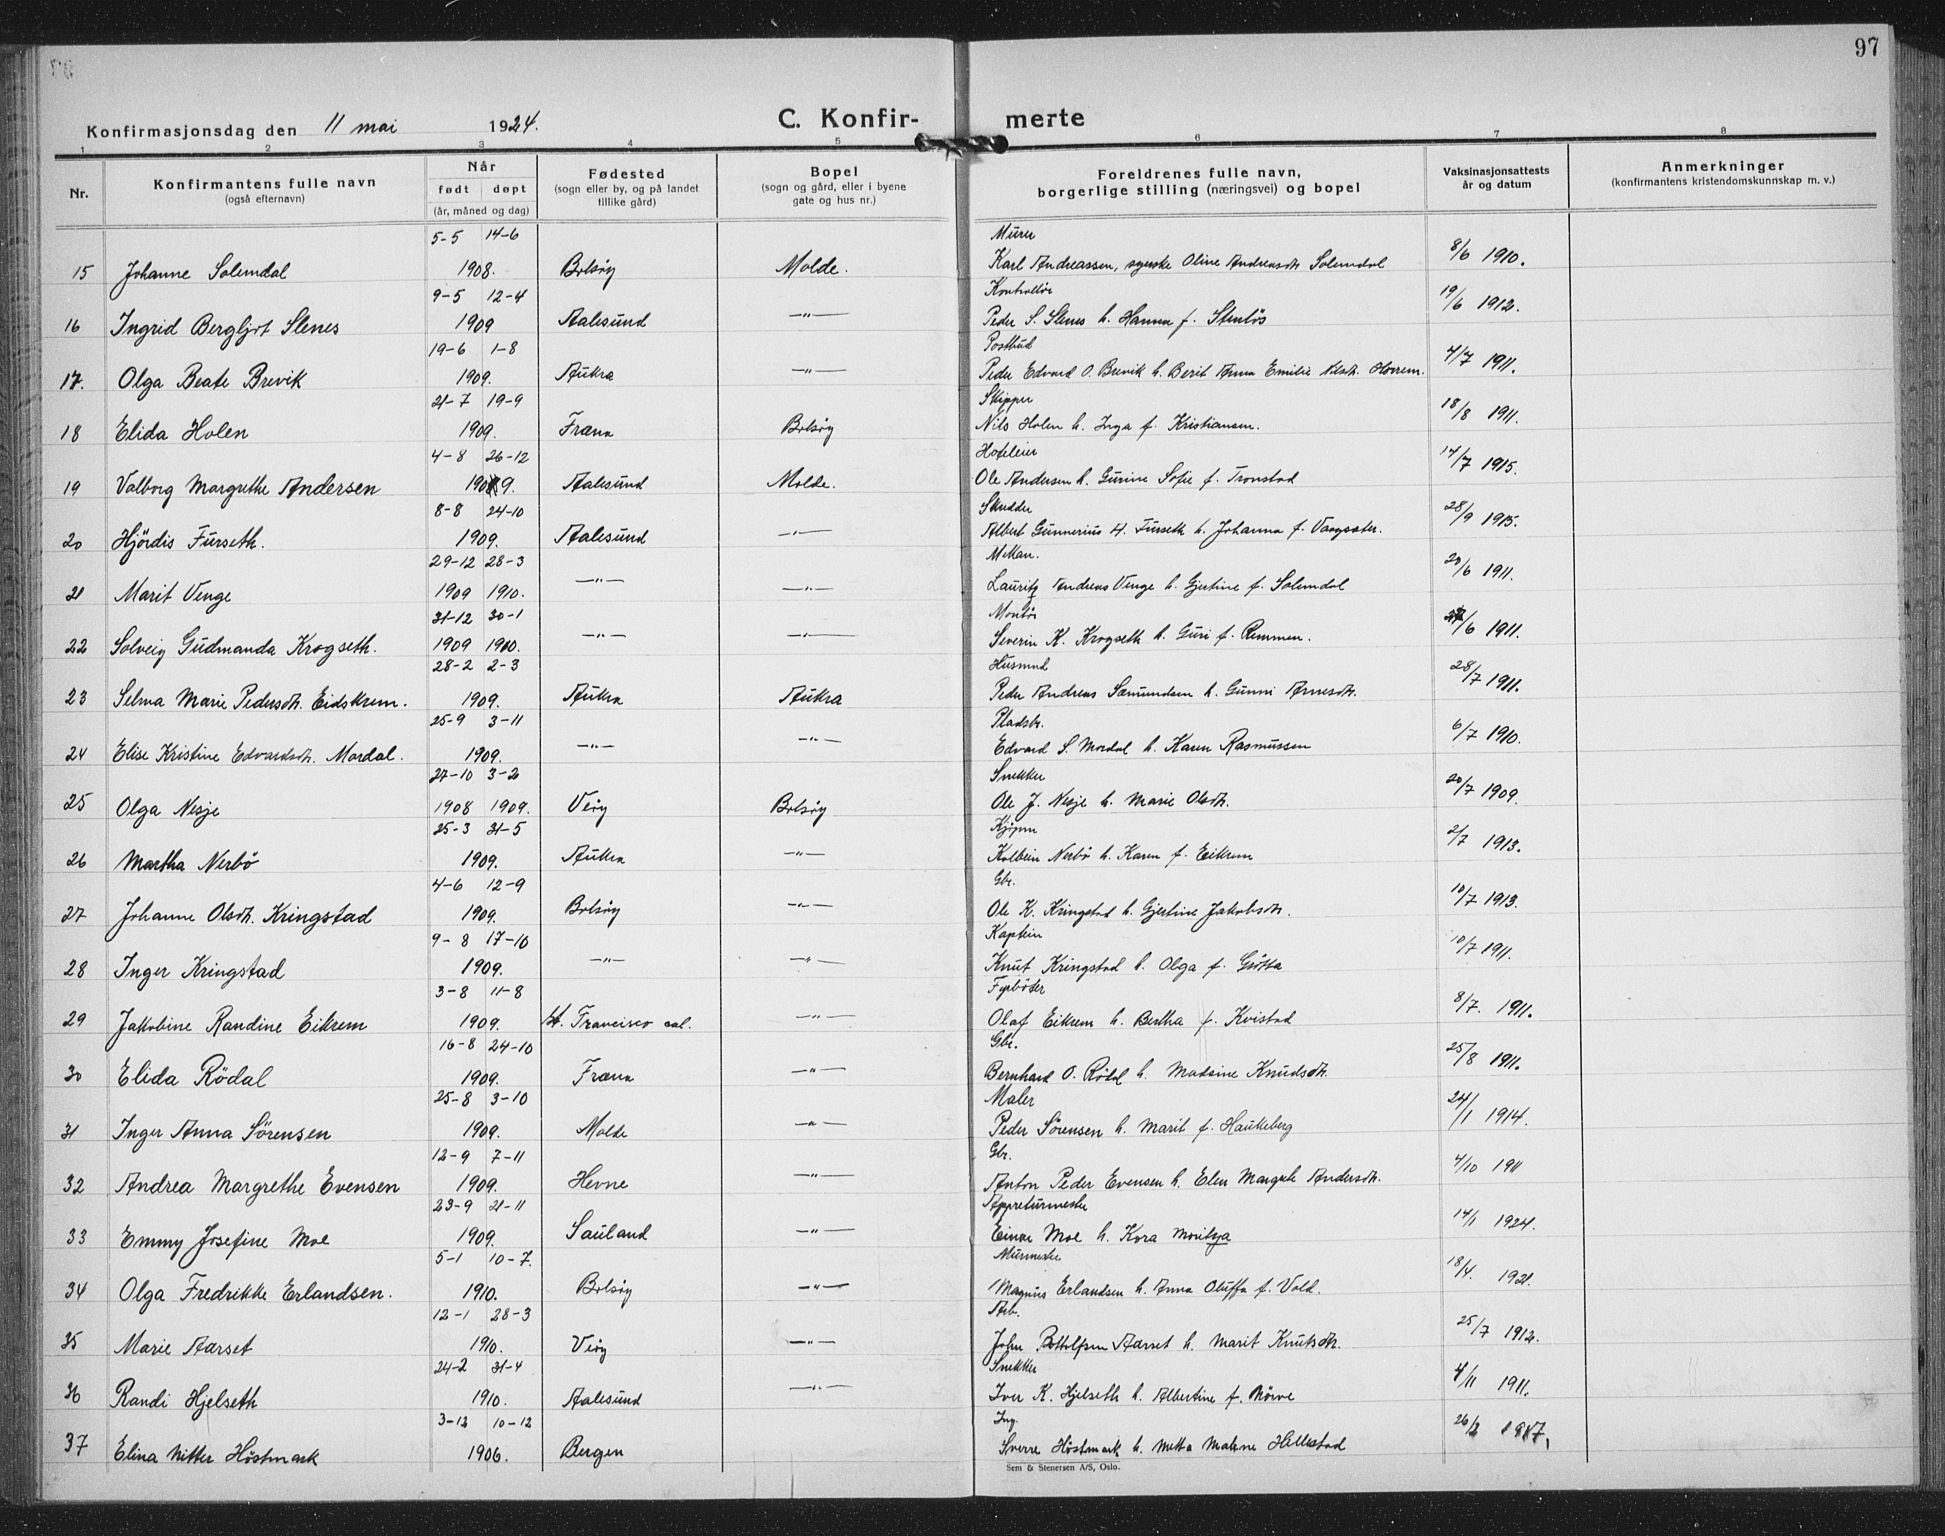 97
Konfirmasjonsdag den 11 mai 1924.
C. Konfir- merte
1 2 3 4 5 6 7 8
Nr. Konfirmantens fulle navn (også efternavn) Når født døpt (år, måned og dag) Fødested (sogn eller by, og på landet tillike gård) Bopel (sogn og gård, eller i byene gate og hus nr.) Foreldrenes fulle navn, borgerlige stilling (næringsvei) og bopel Vaksinasjonsattests år og datum Anmerkninger (konfirmantens kristendomskunnskap m. v.)
5-5 14-6 Murer
15 Johanne Solemdal 1908. Bolsøy Molde. Karl Andreassen, Oline Andreasdtr. Solemdal 8/6 1910.
9-5 12-4 Kontrollør
16 Ingrid Bergljot Slenes 1909 Aalesund —"— Peder S. Slenes h. Hanna f. Stenløs 19/6 1912.
19-6 1-8 Postbud
17. Olga Beate Brevik 1909. Aukra —"— Peder Edvard O. Brevik h. Berit Anna Emilie Nilsdtr. Hovrem. 4/7 1911.
21-7 19-9 Skipper
18 Elida Holen 1909. Fræna Bolsøy Nils Holen h. Inga f. Kristiansen. 18/8 1911.
4-8 26-12 Hoteleier
19 Valborg Margrethe Andersen 1909. Aalesund Molde. Ole Andersen h. Gurine Sofie f. Tronstad 14/7 1915.
8-8 24-10 Skredder
20 Hjördis Furseth. 1909. Aalesund —"— Albert Gunnerius H. Furseth h. Johanna f. Vaagsæter. 28/9 1915.
29-12 28-3 Mekan.
21 Marit Venge 1909 1910. —"— —"— Lauritz Andreas Venge h. Gjertine f. Solemdal 29/6 1911.
31-12 30-1 Montör
22 Solveig Gudmanda Krogseth. 1909 1910. —"— —"— Severin K. Krogseth h. Guri f. Remmen. /6 1911.
28-2 2-3 Husmnd
23 Selma Marie Pedersdtr. Eidskrem. 1909. Aukra Aukra Peder Andreas Samundsen h. Gunni Arnesdtr. 28/7 1911.
25-9 3-11 Pladsbr.
24 Elise Kristine Edvardsdtr. Mordal. 1909. —"— —"— Edvard S. Mordal h. Karen Rasmussen 6/7 1910.
27-10 3-2 Snekker
25 Olga Nesje 1908 1909. Veøy Bolsøy Ole J. Nesje h. Marie Olsdtr. 20/7 1909.
25-3 31-5 Kjøpm
26 Martha Nerbö 1909. Aukra —"— Kolbein Nerbö h. Karen f. Eikrem 2/7 1913.
4-6 12-9 Gbr.
27 Johanne Olsdtr. Kringstad 1909. Bolsøy —"— Ole K. Kringstad h. Gjertine Jakobsdtr. 10/7 1913.
9-8 17-10 Kaptein
28 Inger Kringstad 1909. —"— —"— Knut Kringstad h. Olga f. Götta 10/7 1911.
3-8 11-8 Fyrböter
29 Jakobine Randine Eikrem 1909. Francisco cal. —"— Olaf Eikrem h. Bertha f. Kvistad 8/7. 1911.
16-8 24-10 Gbr.
30 Elida Rödal 1909. Fræna —"— Bernhard O. Rödal h. Madsine Knudsdtr. 25/8 1911.
25-8 3-10 Maler
31 Inger Anna Sörensen 1909. Molde —"— Peder Sörensen h. Marit f. Haukeberg 24/1 1914.
12-9 7-11 Gbr.
32 Andrea Margrethe Evensen 1909. Hevne —"— Anton Peder Evensen h. Elen Margrete Andersdtr. 4/10 1911
23-9 21-11 Appreturmester
33 Emmy Josefine Moe 1909. Sauland —"— Einar Moe h. Kora 14/1 1924.
5-1 10-7. Murmester
34 Olga Fredrikke Erlandsen. 1910. Bolsøy —"— Magnus Erlandsen h. Anna Oluffa f. Vold. 18/4. 1921.
12-1 28-3 Arb.
35 Marie Aarset 1910. Veøy —"— John Bottolfsen Aarset h. Marit Knutsdtr. 25/7 1912.
24-2 31-4 Snekker
36 Randi Hjelseth 1910. Aalesund —"— Iver K. Hjelseth h. Albertine f. Mörve 4/11 1911.
3-12 10-12 Ing.
37 Elina Nitter Höstmark 1906. Bergen Sverre Höstmark h. Metta Malene Hellestad 26/2 1917.
Sem & Stenersen A/S, Oslo.